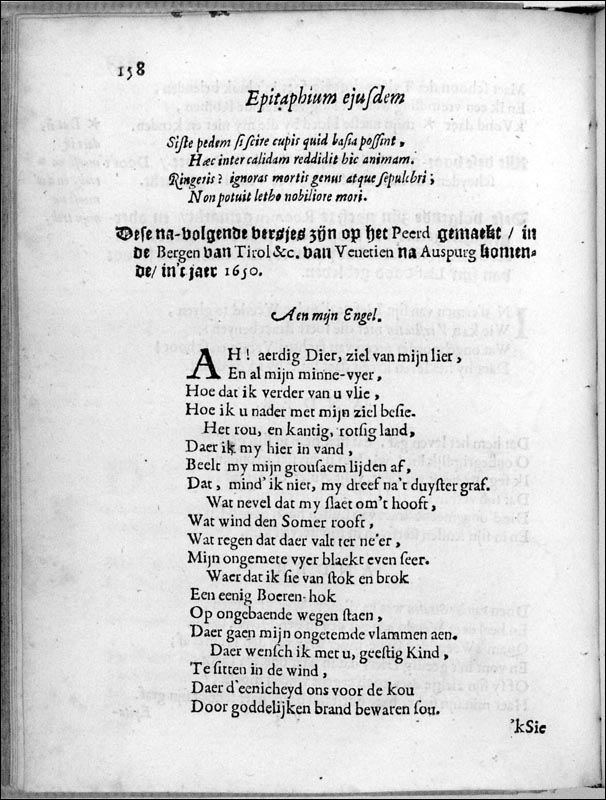 158
Epitaphium ejusdem
Siste pedem si scire cupis quid basia possint,
Hæc inter calidam reddidit hic animam.
Ringeris? ignoras mortis genus atque sepulchri;
Non potuit letho nobiliore mori.
Dese na-volgende versjes zijn op het Peerd gemaekt / in
de Bergen van Tirol &c. van Venetien na Auspurg komen-
de/ in't jaer 1650.
Aen mijn Engel.
AH! aerdig Dier, ziel van mijn lier,
En al mijn minne-vyer,
Hoe dat ik verder van u vlie,
Hoe ik u nader met mijn ziel besie.
Het rou, en kantig, rotsig land,
Daer ik my hier in vand,
Beelt my mijn grousaem lijden af,
Dat, mind' ik niet, my dreef na't duyster graf.
Wat nevel dat my slaet om't hooft,
Wat wind den Somer rooft,
Wat regen dat daer valt ter ne'er,
Mijn ongemete vyer blaekt even seer.
Waer dat ik sie van stok en brok
Een eenig Boeren-hok
Op ongebaende wegen staen,
Daer gaen mijn ongetemde vlammen aen.
Daer wensch ik met u, geestig Kind,
Te sitten in de wind,
Daer d'eenicheyd ons voor de kou
Door goddelijken brand bewaren sou.
'kSie